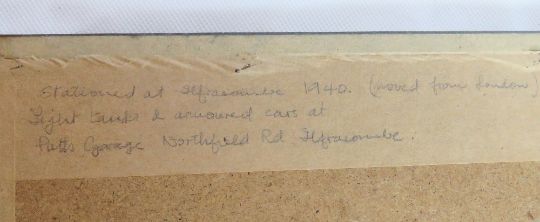 Stationed at Ilfracombe 1940. (moved from London)
Light tanks & armoured cars at
Patts Garage Northfield Rd Ilfracombe.